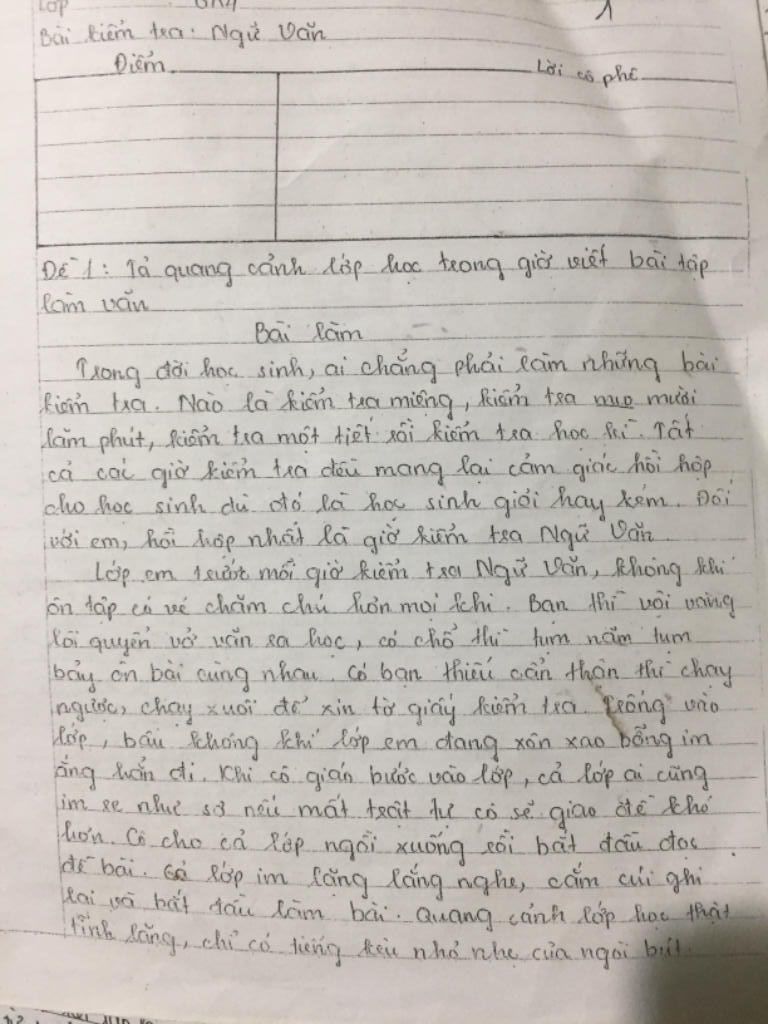 Lớp
1
Bài kiểm tra: Ngữ Văn
Điểm Lời cô phê
Đề 1: Tả quang cảnh lớp học trong giờ viết bài tập
làm văn
Bài làm
Trong đời học sinh, ai chẳng phải làm những bài
kiểm tra. Nào là kiểm tra miệng, kiểm tra mười
lăm phút, kiểm tra một tiết rồi kiểm tra học kì. Tất
cả các giờ kiểm tra đều mang lại cảm giác hồi hộp
cho học sinh dù đó là học sinh giỏi hay kém. Đối
với em, hồi hộp nhất là giờ kiểm tra Ngữ Văn.
Lớp em trước mỗi giờ kiểm tra Ngữ Văn, không khí
ôn tập có vẻ chăm chú hơn mọi khi. Bạn thì vội vàng
lôi quyển vở văn ra học, có chỗ thì tụm năm tụm
bảy ôn bài cùng nhau. Có bạn thiếu cẩn thận thì chạy
ngược, chạy xuôi để xin tờ giấy kiểm tra. Trống vào
lớp, bầu không khí lớp em đang xôn xao bỗng im
ắng hẳn đi. Khi cô giáo bước vào lớp, cả lớp ai cũng
im re như sợ nếu mất trật tự cô sẽ giao đề khó
hơn. Cô cho cả lớp ngồi xuống rồi bắt đầu đọc
đề bài. Cả lớp im lặng lắng nghe, cắm cúi ghi
lại và bắt đầu làm bài. Quang cảnh lớp học thật
tĩnh lặng, chỉ có tiếng kêu nhỏ nhẹ của ngòi bút.